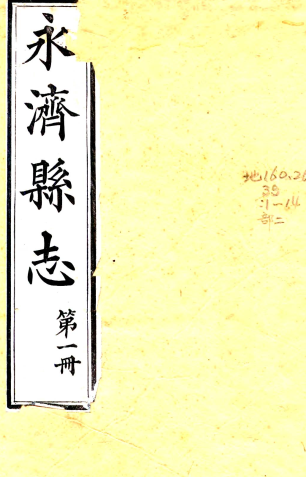 永濟縣志
第一冊
地160.26
39
:1-14
部二